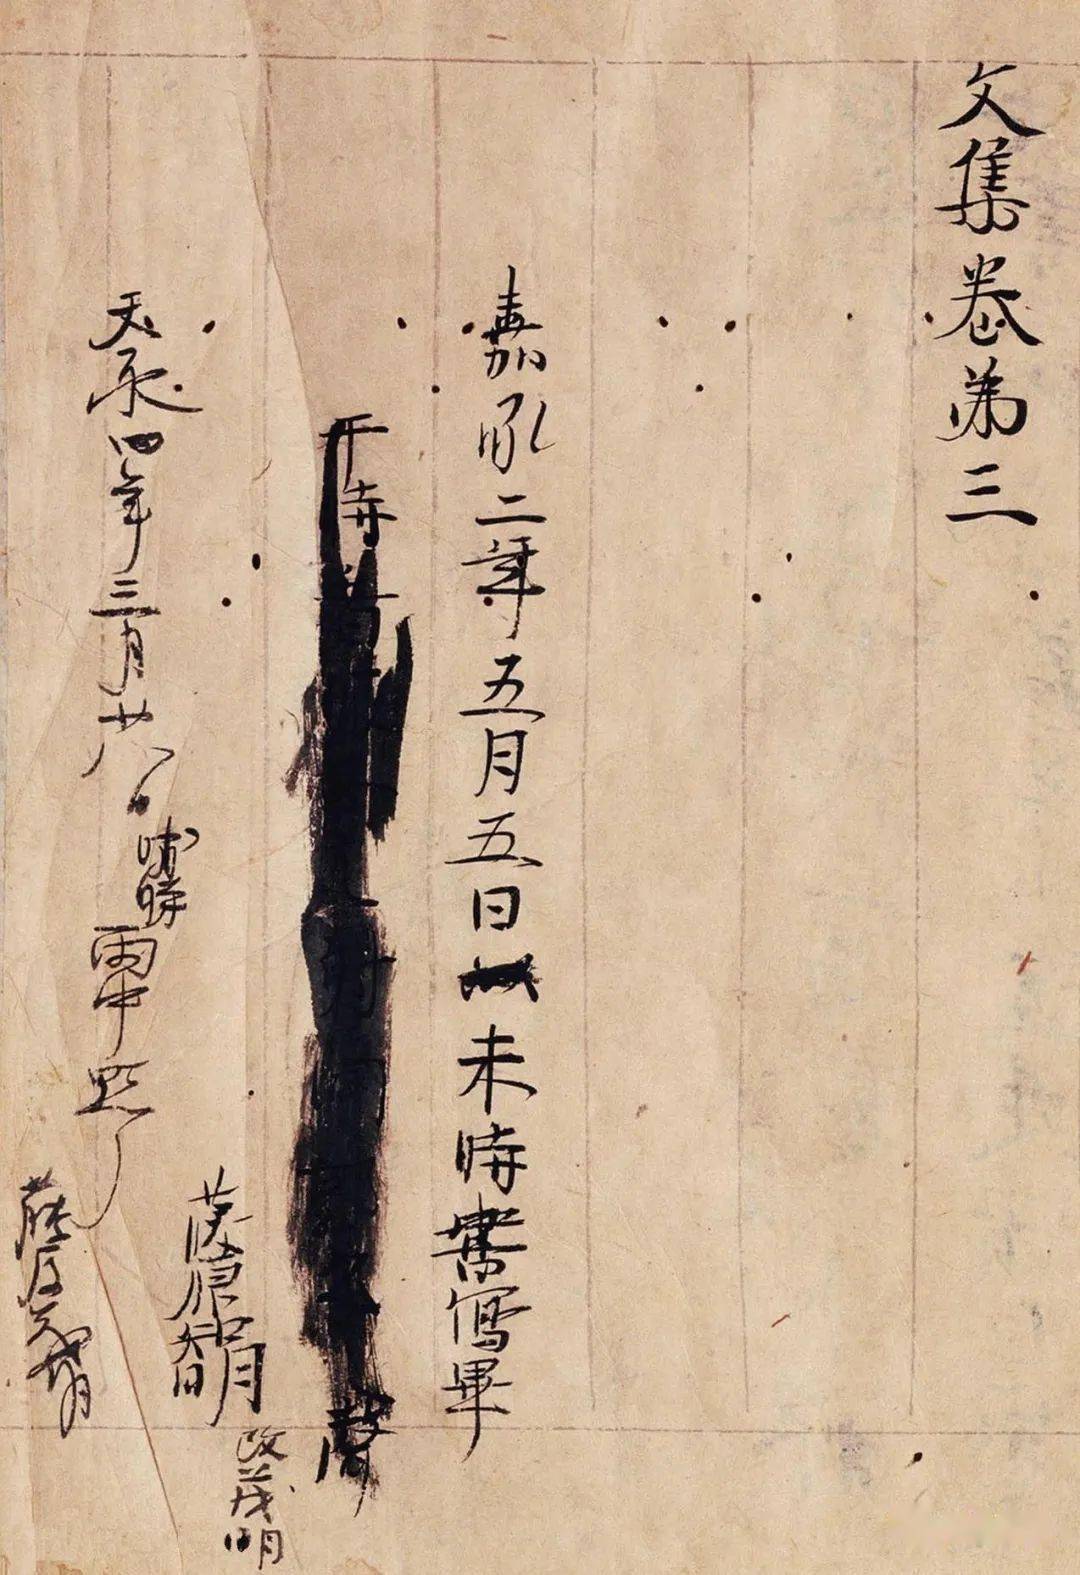 文集卷第三
嘉承二年五月五日未時書寫畢
于時
藤原知明
改茂明
天永四年三月廿八日晡時雨中點了
藤原茂明